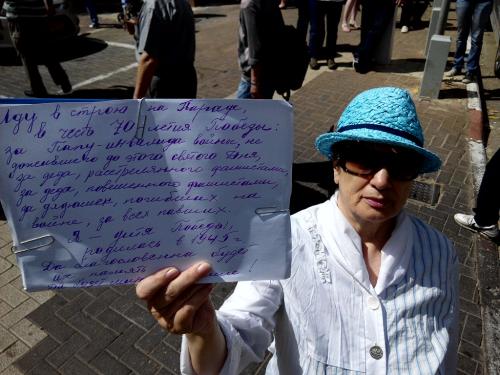 Иду в строю на Параде,
в честь 70-летия Победы:
за Папу-инвалида войны, не
дожившего до этого святого дня,
за деда, расстрелянного фашистами,
за деда, повешенного фашистами,
за дядюшек, погибших на
войне, за всех павших.
Я – дитя Победы!,
родилась в 1945 г.
Да благословенна будет
их память